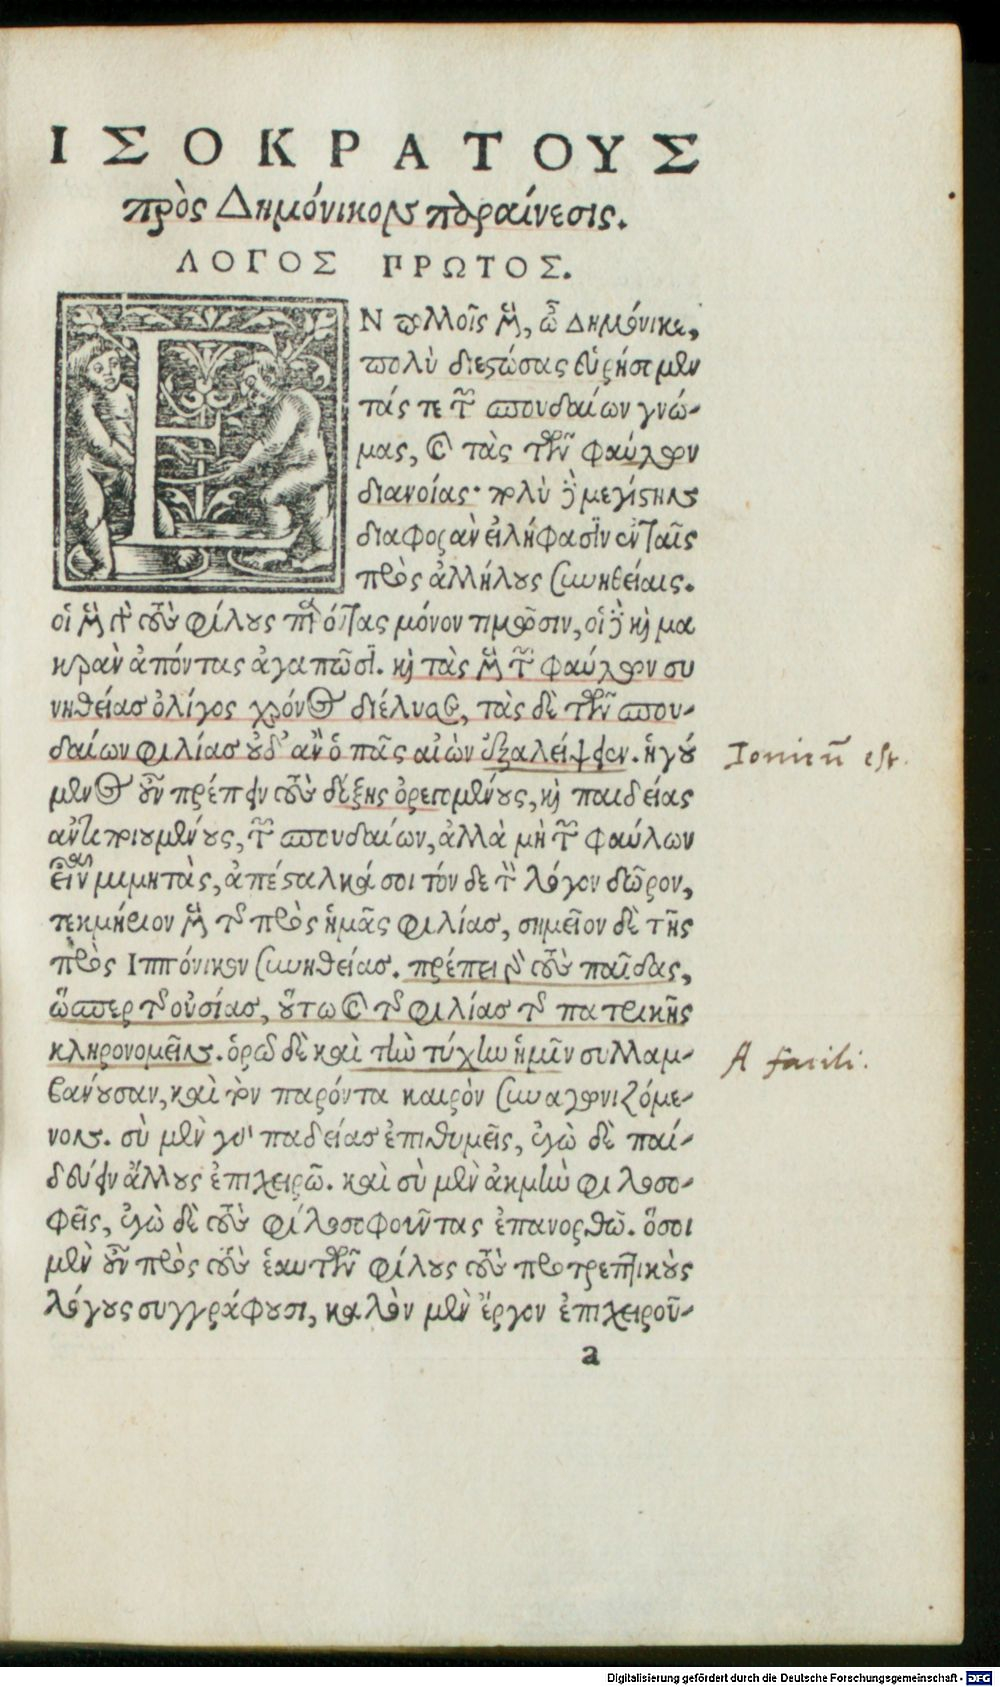 ΙΣΟΚΡΑΤΟΥΣ
πρὸς Δημόνικον παραίνεσις.
ΛΟΓΟΣ ΠΡΩΤΟΣ.
ΕΝ πολλοῖς μὲν, ὦ Δημόνικε,
πολὺ διεστώσας εὑρήσομεν
τάς τε τῶν σπουδαίων γνώ-
μας, καὶ τὰς τῶν φαύλων
διανοίας· πολὺ δὲ μεγίστην
διαφορὰν εἰλήφασιν ἐν ταῖς
πρὸς ἀλλήλους συνηθείαις.
οἱ μὲν γὰρ τοὺς φίλους παρόντας μόνον τιμῶσιν, οἱ δὲ καὶ μα
κρὰν ἀπόντας ἀγαπῶσι. καὶ τὰς μὲν τῶν φαύλων συ
νηθείας ὀλίγος χρόνος διέλυσε, τὰς δὲ τῶν σπου-
δαίων φιλίας οὐδ' ἂν ὁ πᾶς αἰὼν ἐξαλείψειεν. ἡγού
μενος οὖν πρέπειν τοὺς δόξης ὀρεγομένους, καὶ παιδείας
ἀντιποιουμένους, τῶν σπουδαίων, ἀλλὰ μὴ τῶν φαύλων
εἶναι μιμητὰς, ἀπέσταλκά σοι τόν δε τὸν λόγον δῶρον,
τεκμήριον μὲν τῆς πρὸς ἡμᾶς φιλίας, σημεῖον δὲ τῆς
πρὸς Ιππόνικον συνηθείας. πρέπει γὰρ τοὺς παῖδας,
ὥσπερ τῆς οὐσίας, οὕτω καὶ τῆς φιλίας τῆς πατρικῆς
κληρονομεῖν. ὁρῶ δὲ καὶ τὴν τύχην ἡμῖν συλλαμ-
βάνουσαν, καὶ τὸν παρόντα καιρὸν συναγωνιζόμε-
νον. σὺ μὲν γὰρ παδείας ἐπιθυμεῖς, ἐγὼ δὲ παί-
δευειν ἄλλους ἐπιχειρῶ. καὶ σὺ μὲν ἀκμὴν φιλοσο-
φεῖς, ἐγὼ δὲ τοὺς φιλοσοφοῦντας ἐπανορθῶ. ὅσοι
μὲν οὖν πρὸς τοὺς ἑαυτῶν φίλους τοὺς προτρεπτικοὺς
λόγους συγγράφουσι, καλὸν μὲν ἔργον ἐπιχειροῦ-
a
A facili.
Digitalisierung gefördert durch die Deutsche Forschungsgemeinschaft - DFG